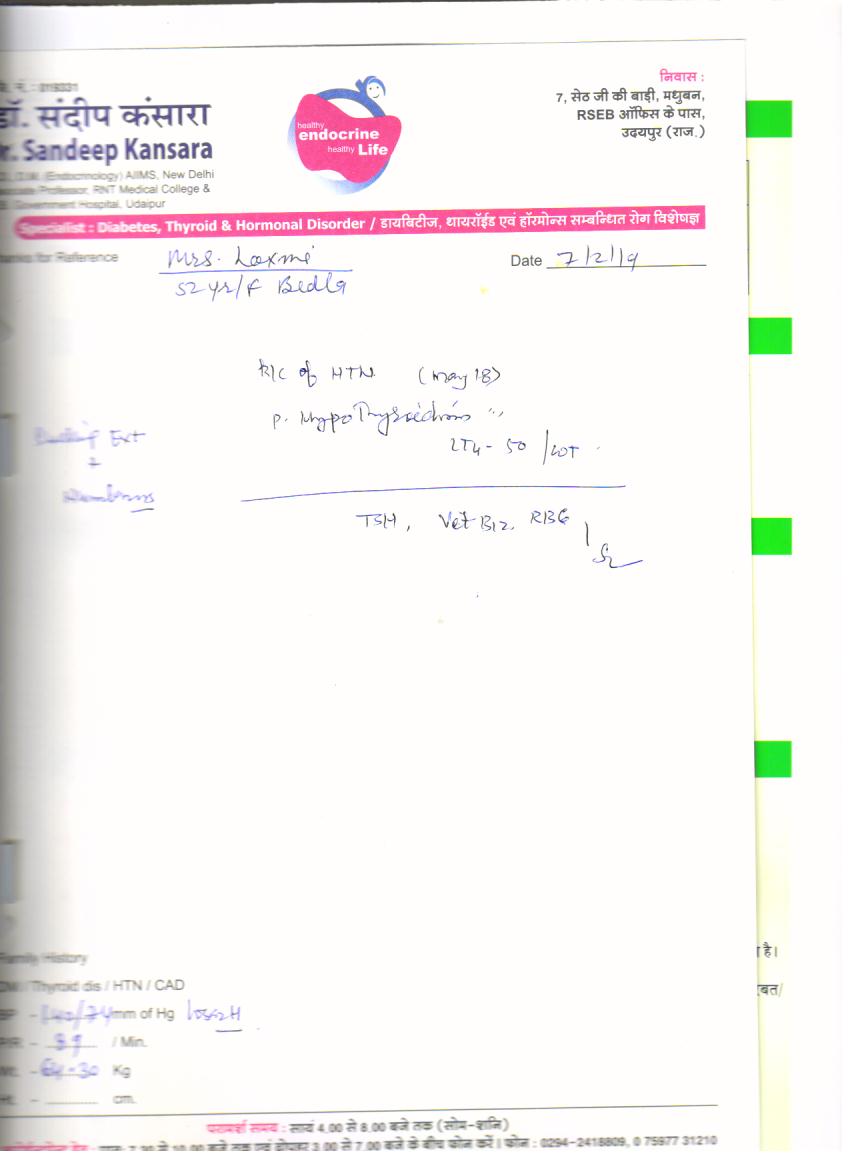 डॉ. संदीप कंसारा
Dr. Sandeep Kansara
(Endocrinology) AIIMS, New Delhi
Professor, RNT Medical College &
Government Hospital, Udaipur
healthy
endocrine
healthy Life
निवास :
7, सेठ जी की बाड़ी, मधुबन,
RSEB ऑफिस के पास,
उदयपुर (राज.)
Specialist : Diabetes, Thyroid & Hormonal Disorder / डायबिटीज, थायरॉईड एवं हॉरमोन्स सम्बन्धित रोग विशेषज्ञ
for Reference
Mrs. Laxmi
Date 7/2/19
52 yr/F Bedla
K/C of HTN (May 18)
P. Hypothyroidism
LT4 - 50
Ext
+
Numbness
TSH, Vit B12, RBG
है।
Family History
DM / Thyroid dis / HTN / CAD
BP - 140/74 mm of Hg
P/R - 89 / Min.
Wt. - 64.30 Kg
Ht. - ............ cm.
परामर्श समय : सायं 4.00 से 8.00 बजे तक (सोम-शनि)
7.30 से 10.00 बजे तक एवं दोपहर 3.00 से 7.00 बजे के बीच फोन करें। फोन : 0294-2418809, 0 75977 31210